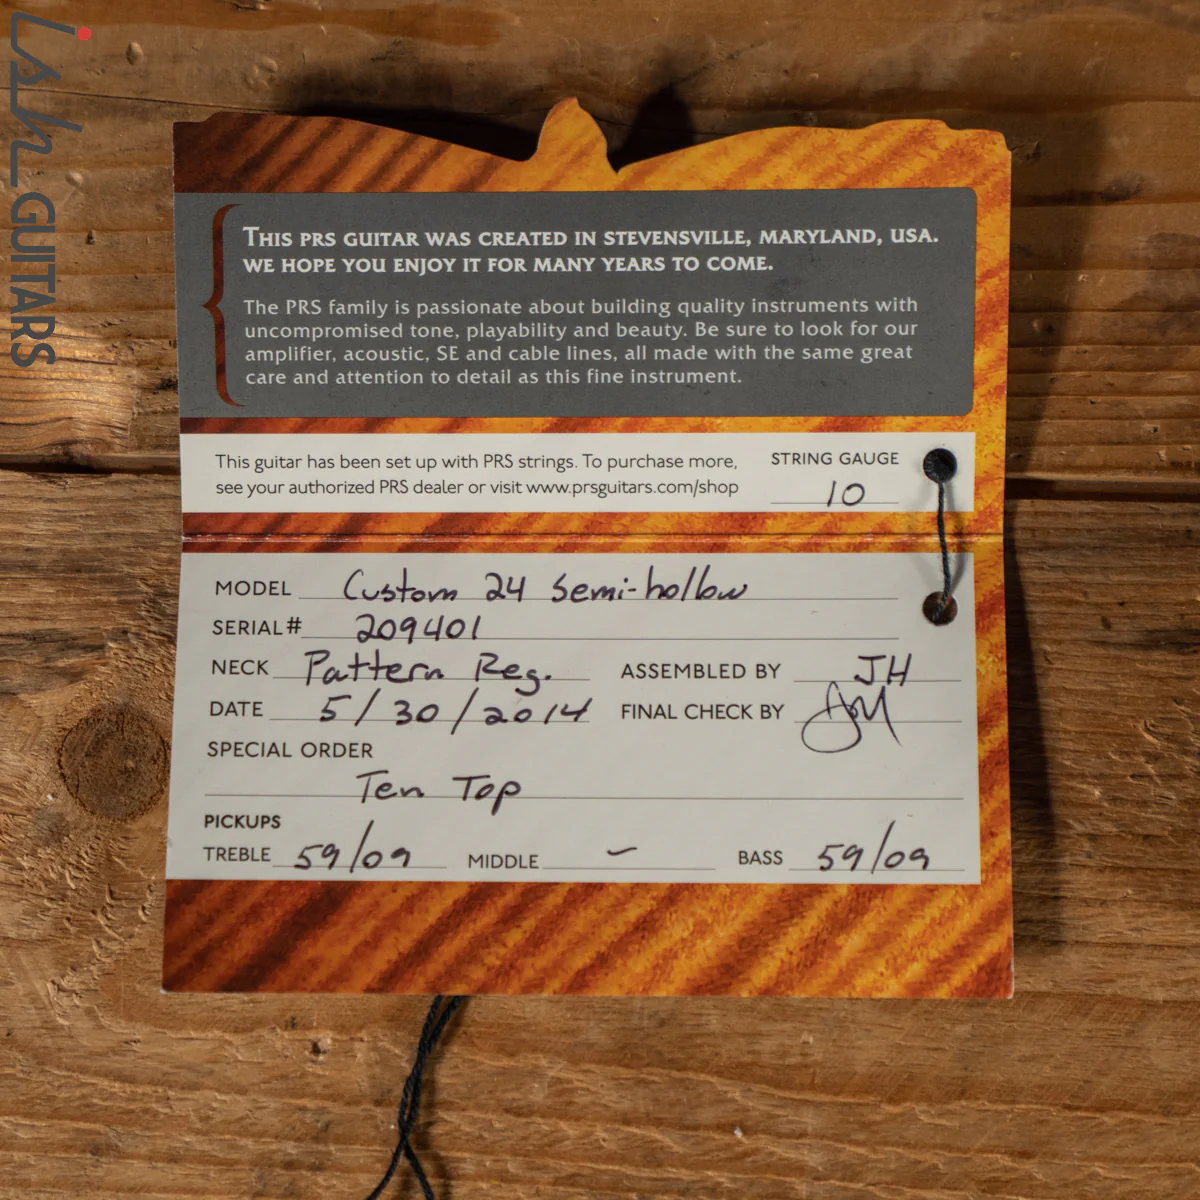 ish GUITARS
THIS PRS GUITAR WAS CREATED IN STEVENSVILLE, MARYLAND, USA.
WE HOPE YOU ENJOY IT FOR MANY YEARS TO COME.
The PRS family is passionate about building quality instruments with
uncompromised tone, playability and beauty. Be sure to look for our
amplifier, acoustic, SE and cable lines, all made with the same great
care and attention to detail as this fine instrument.
This guitar has been set up with PRS strings. To purchase more,
see your authorized PRS dealer or visit www.prsguitars.com/shop
STRING GAUGE
10
MODEL Custom 24 Semi-hollow
SERIAL# 209401
NECK Pattern Reg. ASSEMBLED BY JH
DATE 5/30/2014 FINAL CHECK BY
SPECIAL ORDER
Ten Top
PICKUPS
TREBLE 59/09 MIDDLE - BASS 59/09